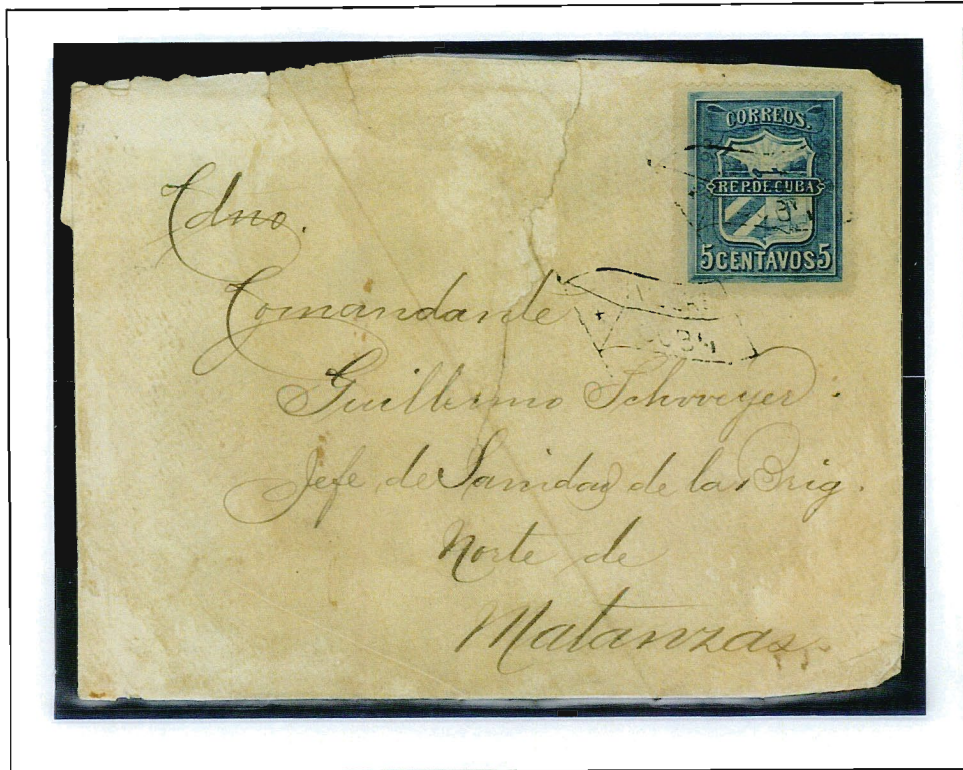 CORREOS.
REP. DE CUBA
5 CENTAVOS 5
Cdno.
Comandante
Guillermo Schweyer.
Jefe de Sanidad de la Brig.
Norte de
Matanzas
CUBA